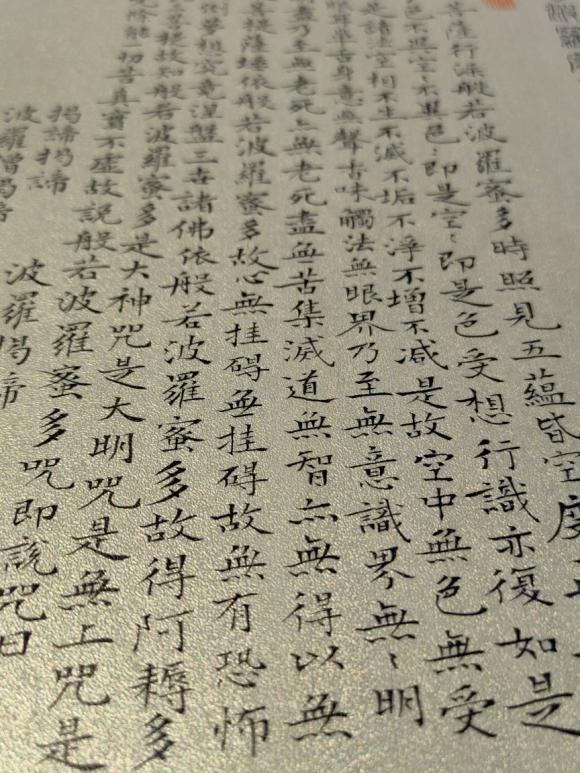 菩薩行深般若波羅蜜多時照見五蘊皆空度
色不異空〻不異色即是空〻即是色受想行識亦復如是
是諸法空相不生不滅不垢不淨不增不减是故空中無色無受
眼耳鼻舌身意無聲香味觸法無眼界乃至無意識界無〻明
盡乃至無老死亦無老死盡無苦集滅道無智亦無得以無
菩提薩埵依般若波羅蜜多故心無挂碍無挂碍故無有恐怖
倒夢想究竟涅槃三世諸佛依般若波羅蜜多故得阿耨多
三菩提故知般若波羅蜜多是大神咒是大明咒是無上咒是
能除一切苦真實不虛故說般若波羅蜜多咒即說咒曰
揭諦揭諦 波羅揭諦
波羅僧揭諦